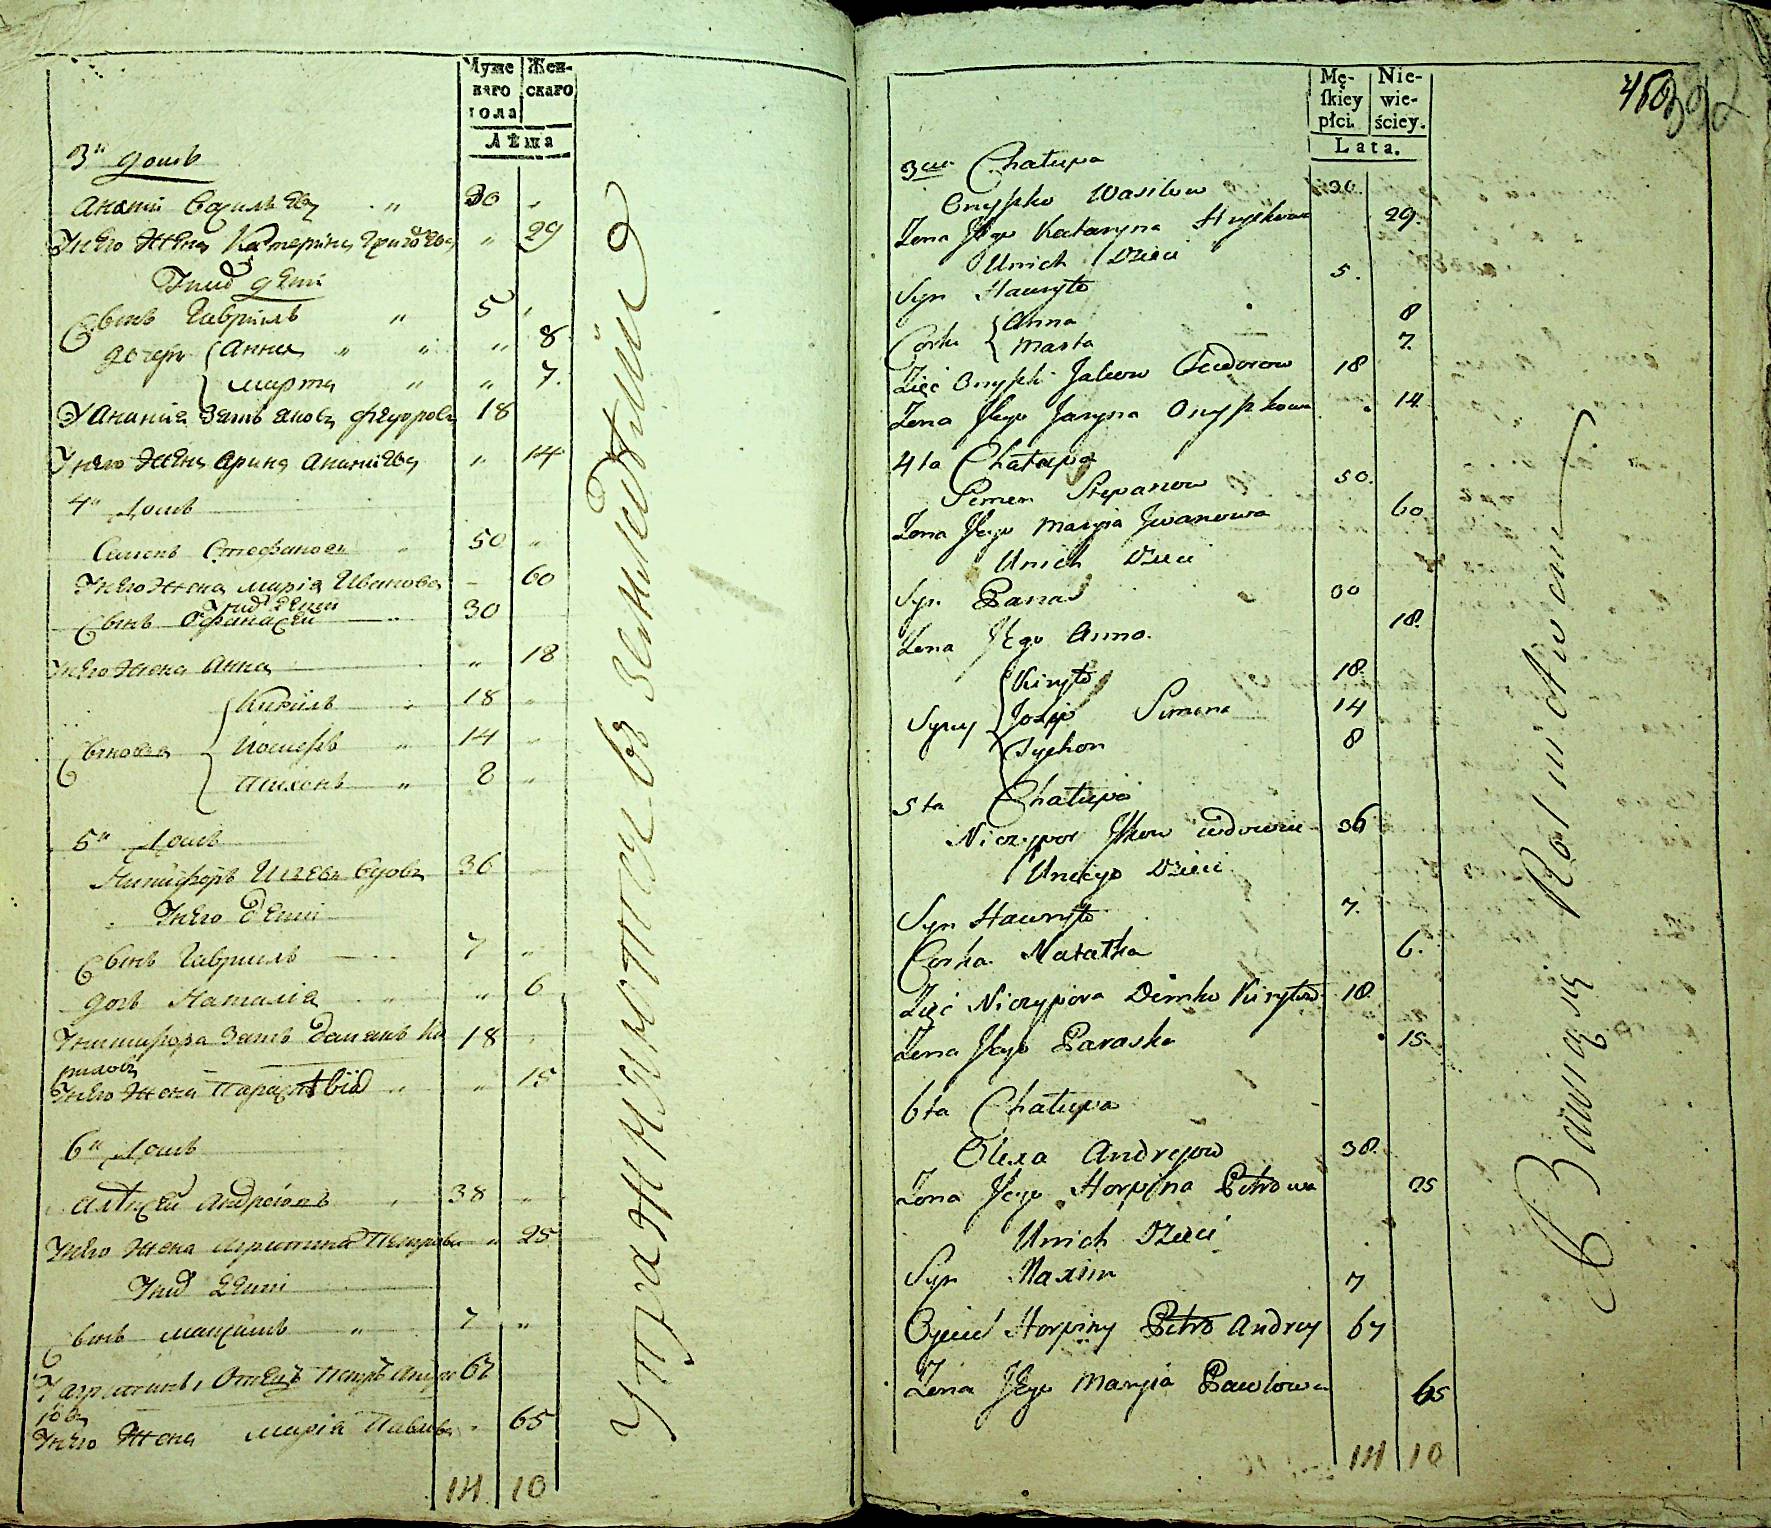 Муже
каго
пола
Жен-
скаго
Лѣта
3й домъ
Ананій Васильевъ " 30 "
У него жена Катерина Григорьева " 29
У них дети
Сынъ Гавриилъ " 5 "
дочери Анна " " " 8
Марта " " 7.
У Ананія зять Яковъ Федоровъ 18
У него жена Арина Ананіева " 14
4й домъ
Семенъ Стефановъ " 50 "
У него жена Марія Иванова - 60
У них дети
Сынъ Афанасей 30
У него жена Анна " 18
Кирилъ " 18 "
Сыновья Иосифъ " 14 "
Тихонъ " 8 "
5й домъ
Никифоръ Ильевъ вдовъ 36
У него дети
Сынъ Гавриилъ 7 "
дочь Наталія " " 6
У Никифора зять Демьянъ Ки
риловъ 18
У него жена Парасковія " " 15
6й домъ
Алексей Андреевъ 38 "
У него жена Агрипина Петрова " 25
У них дети
Сынъ Максимъ " 7 "
У Агрипины Отецъ Петръ Андре
евъ 67
У него жена Марія Павлова " 65
14 10
Упражняются в земледелии
Mę-
skiey
płci.
Nie-
wie-
ściey.
Lata.
460
392
3cia Chałupa
Onyśko Wasilow 30.
Zona Jego Kataryna Hryśkowa 29.
Unich Dzieci
Syn Hawryło 5.
Corki Anna 8
Marta 7.
Zięć Onyśki Jakow Fedorow 18
Zona Jego Jaryna Onyśkowa 14
4ta Chałupa
Semen Stepanow 50.
Zona Jego Maryia Iwanowa 60
Unich Dzieci
Syn Panas 30
Zona Jego Anna. 18.
Kiryło 18.
Syny Jozef Semena 14
Tychon 8
5ta Chałupa
Niczypor Ilkow wdowiec 36
Uniego Dzieci
Syn Hawryło 7.
Corka Natałka 6.
Zięć Niczypora Demko Kiryłow 18.
Zona Jego Paraska 15.
6ta Chałupa
Olexa Andrejow 38.
Zona Jego Horpina Petrowa 25
Unich Dzieci
Syn Maxim 7
Ojciec Horpiny Petro Andrey 67
Zona Jego Maryia Pawłowa 65
14 10
Bawią się Rolnictwem